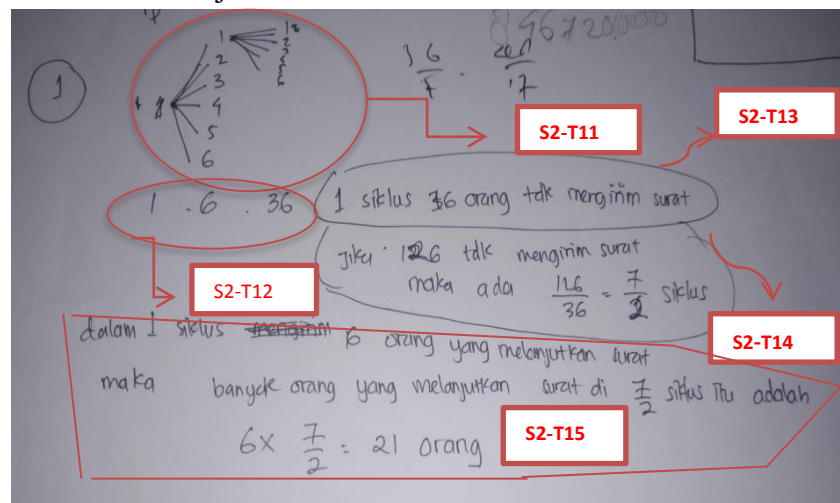 896720,000
1
1
2
3
4
5
6
12
2
3
6
36/7 .
17
S2-T11
S2-T13
1 . 6 . 36
1 siklus 36 orang tdk mengirim surat
Jika 126 tdk mengirim surat
maka ada 126/36 = 7/2 siklus
S2-T12
S2-T14
dalam 1 siklus 6 orang yang melanjutkan surat
maka banyak orang yang melanjutkan surat di 7/2 siklus itu adalah
6 x 7/2 = 21 orang
S2-T15